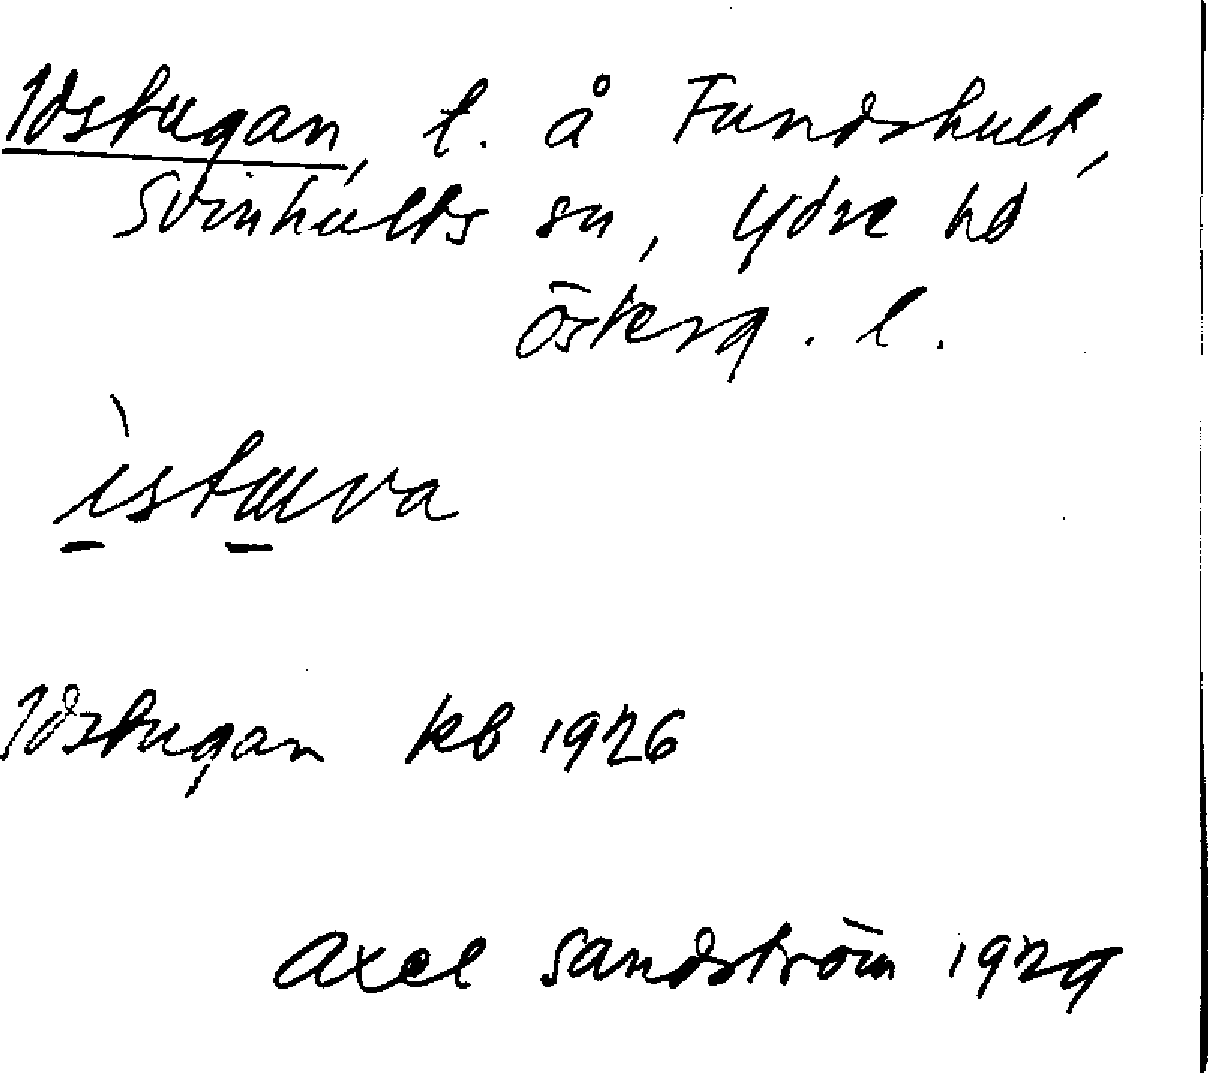 Idstugan, t. å Fundshult,
Svinhults sn, Ydre hd
Österg. l.
ìstuva
Idstugan kb 1926
Axel Sandström 1929